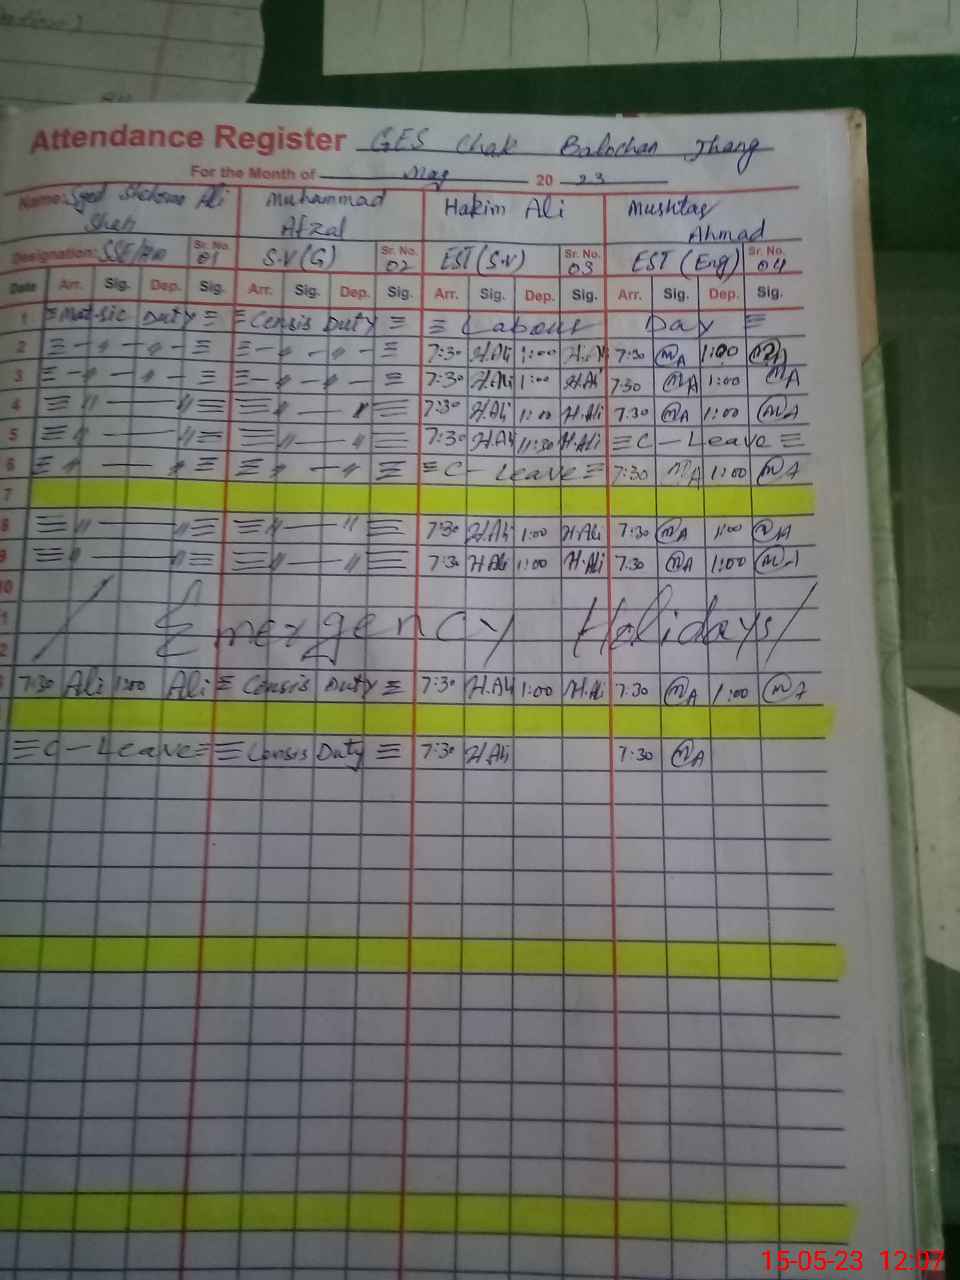 Attendance Register GES Chak Balochan Jhang
For the Month of May 20 23
Name: Syed Ali Shah Muhammad Afzal Hakim Ali Mushtaq Ahmad
Designation: SSE/ Sr. No. 01 S.V (G) Sr. No. 02 EST (S.V) Sr. No. 03 EST (Eng) Sr. No. 04
Date Arr. Sig. Dep. Sig. Arr. Sig. Dep. Sig. Arr. Sig. Dep. Sig. Arr. Sig. Dep. Sig.
1 Matric Duty Censis Duty Labour Day
2 — 〃 — 〃 — — 〃 — 〃 — 7:30 H.Ali 1:00 H.Ali 7:30 MA 1:00 MA
3 — 〃 — 〃 — — 〃 — 〃 — 7:30 H.Ali 1:00 H.Ali 7:30 MA 1:00 MA
4 〃 — 〃 〃 — 〃 7:30 H.Ali 1:00 H.Ali 7:30 MA 1:00 MA
5 〃 — 〃 〃 — 〃 7:30 H.Ali 11:30 H.Ali C - Leave
6 〃 — 〃 〃 — 〃 C - Leave 7:30 MA 1:00 MA
7
8 〃 — 〃 〃 — 〃 7:30 H.Ali 1:00 H.Ali 7:30 MA 1:00 MA
9 〃 — 〃 〃 — 〃 7:30 H.Ali 1:00 H.Ali 7:30 MA 1:00 MA
10
1 / Emergency Holidays /
2
7:30 Ali 1:00 Ali Censis Duty 7:30 H.Ali 1:00 H.Ali 7:30 MA 1:00 MA
C - Leave Censis Duty 7:30 H.Ali 7:30 MA
15-05-23 12:07